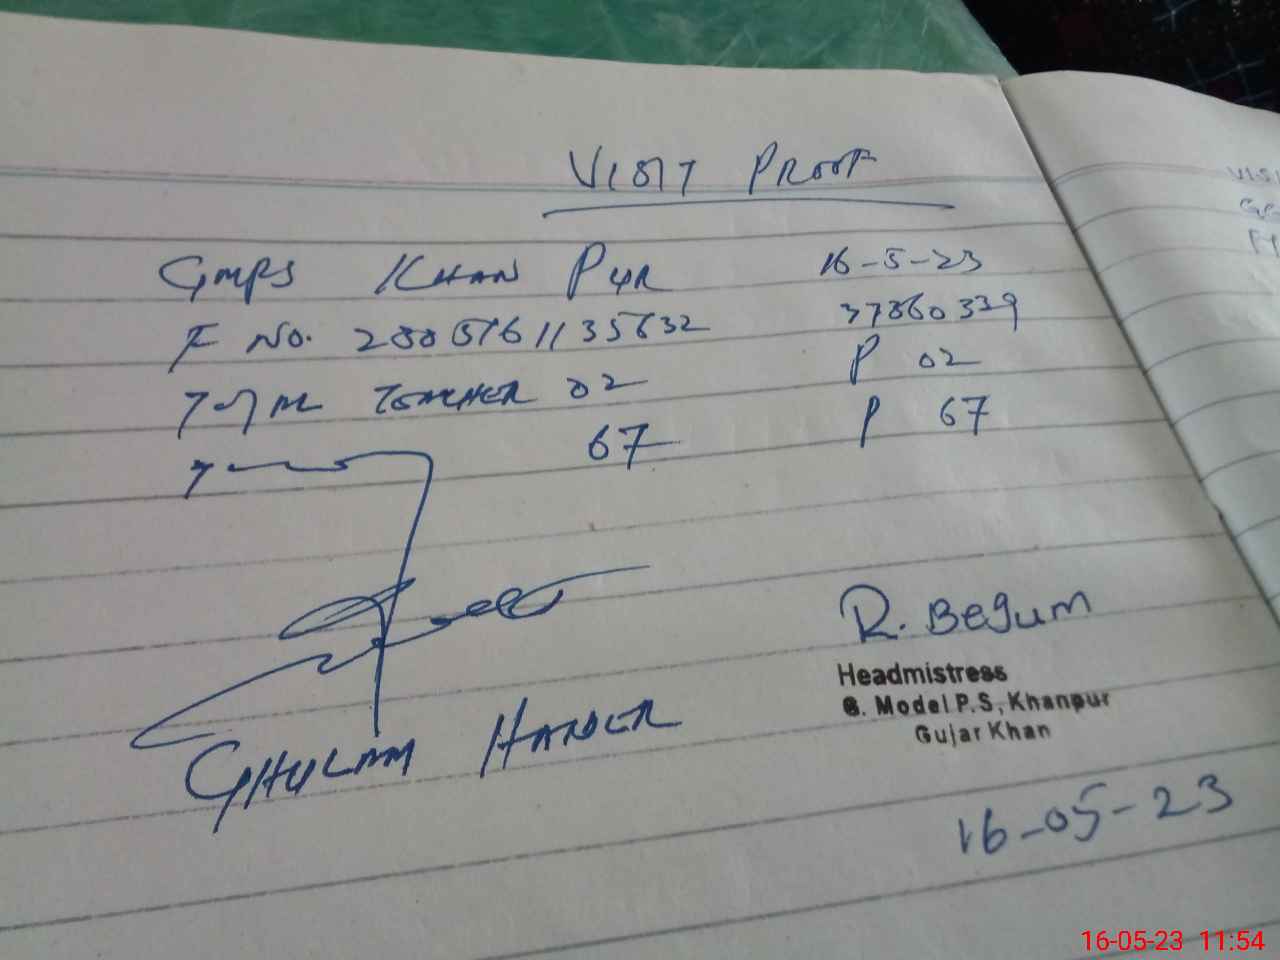 VISIT PROOF
GMPS KHAN PUR 16-5-23
F No. 37360339
TEACHER 02 P 02
67 P 67
R. Begum
Headmistress
G. Model P.S, Khanpur
Gujar Khan
GHULAM HAIDER
16-05-23
VIS
16-05-23 11:54